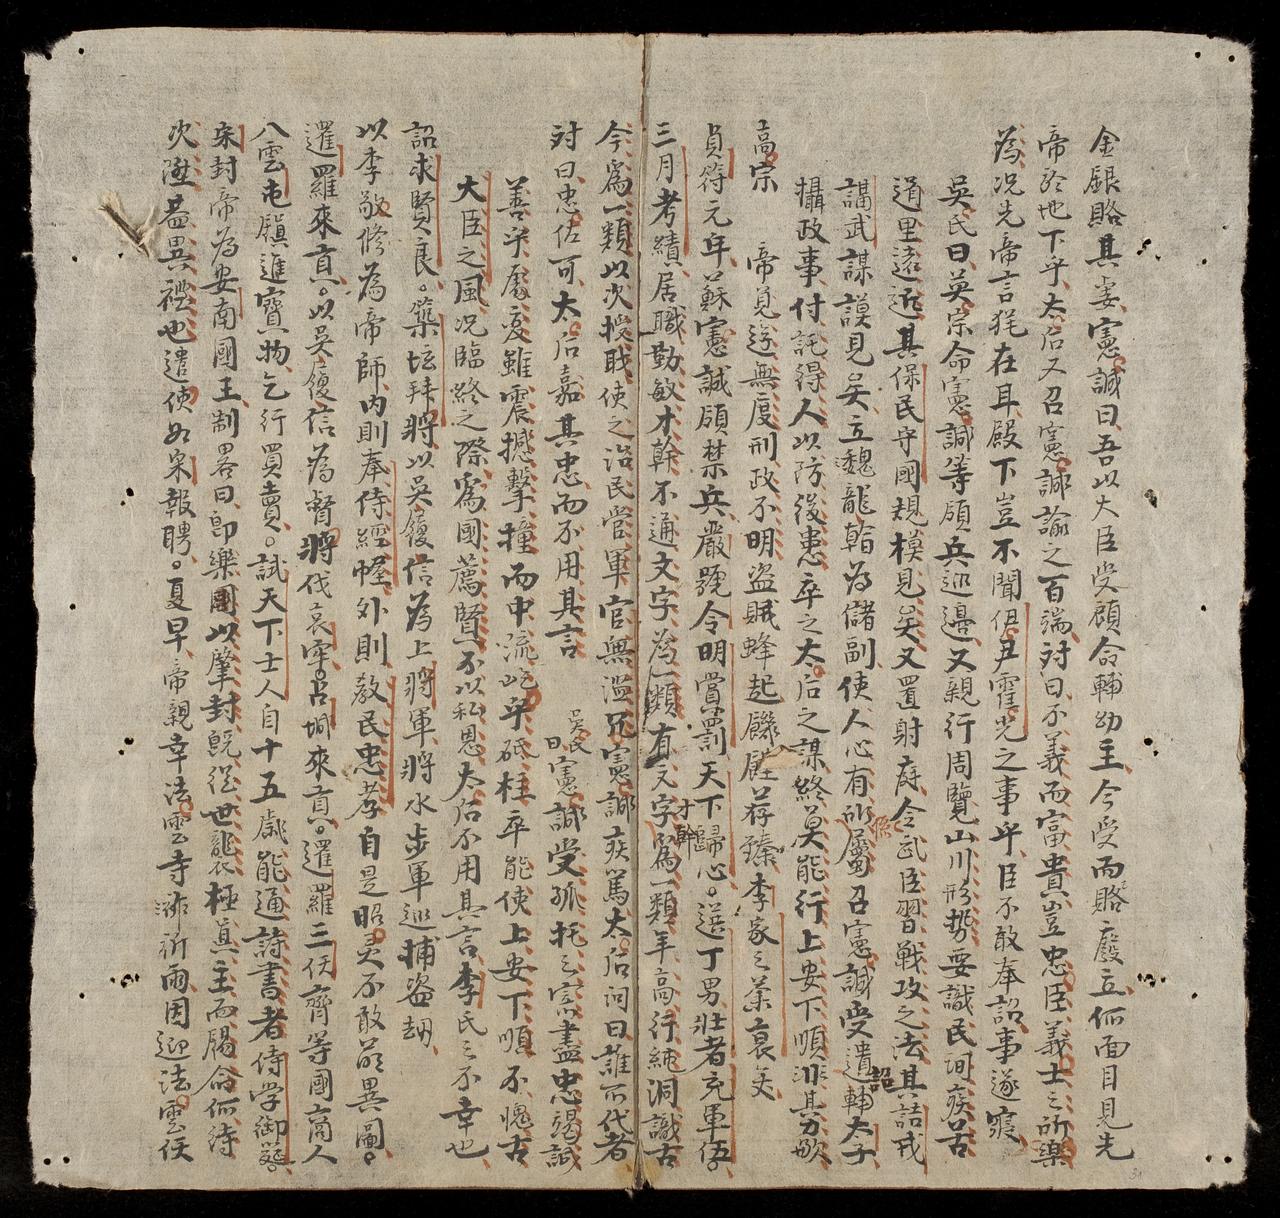 金銀賂其妻憲誠曰吾以大臣受顧命輔幼主今受而賂廢立何面目見先
帝於地下乎太后又召憲誠諭之百端対曰不義而富貴豈忠臣義士之所樂
為况先帝言猶在耳殿下豈不聞伊尹霍光之事乎臣不敢奉詔事遂寢
吳氏曰英宗命憲誠等領兵巡邊又親行周覽山川形勢要識民間疾苦
道里遠近其保民守國規模見矣又置射府令武臣習戰攻之法其詰戎
講武謀謨見矣立魏龍翰為儲副使人心有所係屬召憲誠受遺詔輔太子
攝政事付託得人以防後患卒之太后之謀終莫能行上安下順非其力歟
高宗　帝荒遊無度刑政不明盜賊蜂起饑饉荐臻李家之業衰矣
貞符元年蘇憲誠領禁兵嚴號令明賞罰天下歸心選丁男壯者充軍伍
三月考績居職勤敏才幹不通文字為一類有文字才幹為一類年高行純洞識古
今為一類以次授職使之治民管軍官無濫冗憲誠疾篤太后问曰誰可代者
対曰忠佐可太后嘉其忠而不用其言　吳氏曰憲誠受孤托之寄盡忠竭誠
善乎處变雖震撼擊撞而中流屹乎砥柱卒能使上安下順不愧古
大臣之風况臨終之際為國薦賢不以私恩太后不用其言李氏之不幸也
詔求賢良築坛拜將以吳履信為上將軍將水步軍巡捕盜刼
以李敬修為帝師内則奉侍經幄外則教民忠孝自是昭灵不敢萌異圖
暹羅來貢以吳履信為督將伐哀牢占城來貢暹羅三佛齊等國商人
八雲屯鎮進寶物乞行買賣試天下士人自十五歲能通詩書者侍学御筵
宋封帝為安南國王制畧曰即樂國以肇封旣從世襲極真主而賜命何待
次陞益異禮也遣使如宋報聘夏旱帝親幸法雲寺祈雨因迎法雲佛